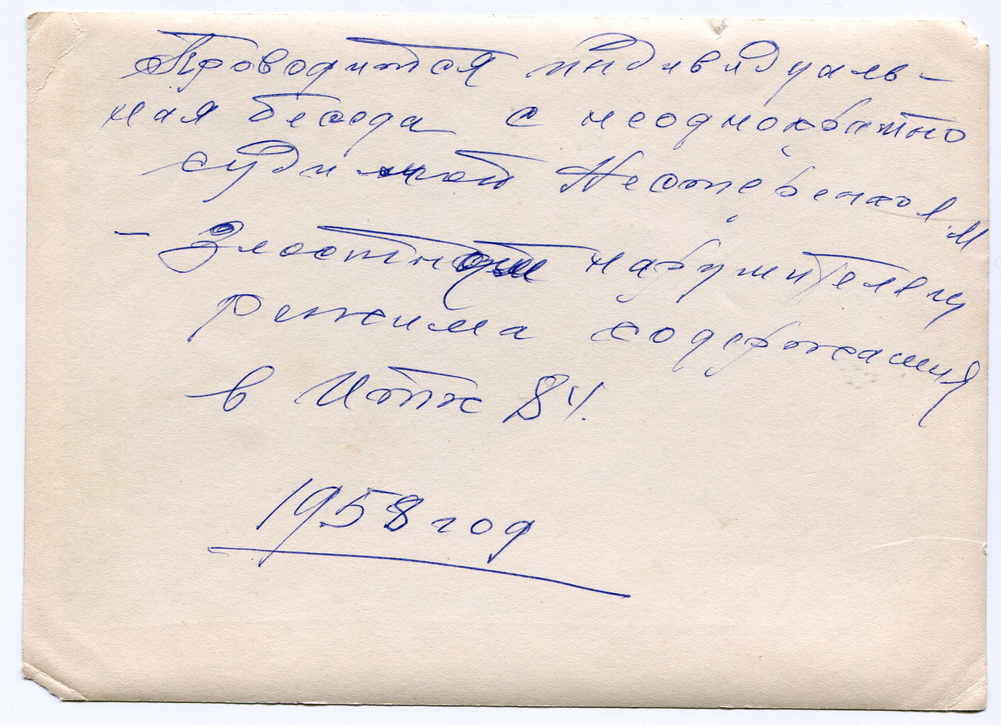 Проводится индивидуаль-
ная беседа с неоднократно
судимой Нестеренко
- Злостным нарушителем
режима содержания
в ИТК 84.
1958 год